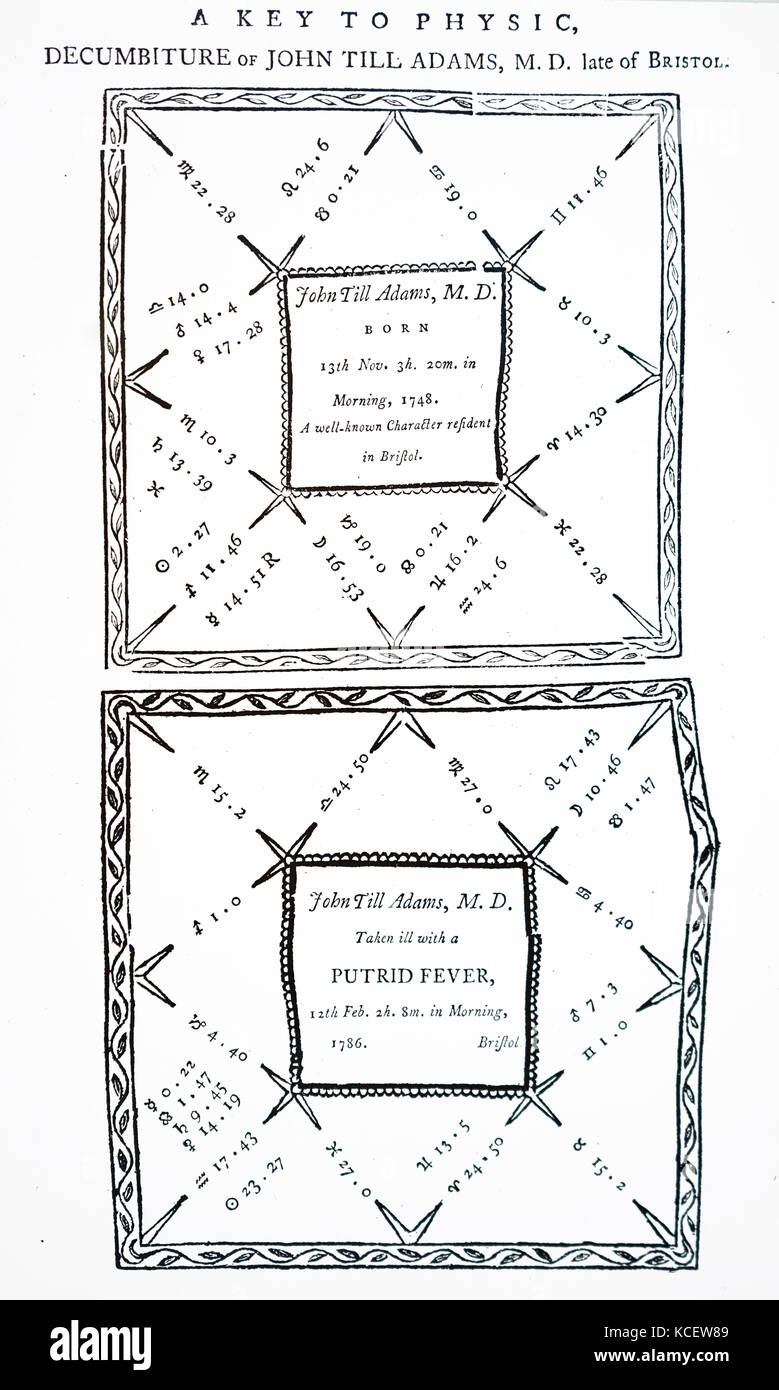 A KEY TO PHYSIC,
DECUMBITURE OF JOHN TILL ADAMS, M. D. late of BRISTOL.
♍ 22 . 28
♌ 24 . 6
☋ 0 . 21
♋ 19 . 0
♊ 11 . 46
♎ 14 . 0
♂ 14 . 4
♀ 17 . 28
♉ 10 . 3
John Till Adams, M. D.
BORN
13th Nov. 3h. 20m. in
Morning, 1748.
A well-known Character reſident
in Briſtol.
♏ 10 . 3
♄ 13 . 39
♈ 14 . 30
☉ 2 . 27
♐ 11 . 46
☿ 14 . 51 R
♑ 19 . 0
☽ 16 . 53
☊ 0 . 21
♃ 16 . 2
♒ 24 . 6
♓ 22 . 28
♏ 15 . 2
♎ 24 . 50
♍ 27 . 0
♌ 17 . 43
☽ 10 . 46
☋ 1 . 47
♐ 1 . 0
♋ 4 . 40
John Till Adams, M. D.
Taken ill with a
PUTRID FEVER,
12th Feb. 2h. 8m. in Morning,
1786. Briſtol
♂ 7 . 3
♊ 1 . 0
♑ 4 . 40
☿ 0 . 22
☊ 1 . 47
♄ 9 . 45
♀ 14 . 19
♒ 17 . 43
☉ 23 . 27
♓ 27 . 0
♃ 13 . 5
♈ 24 . 50
♉ 15 . 2
alamy
Image ID: KCEW89
www.alamy.com